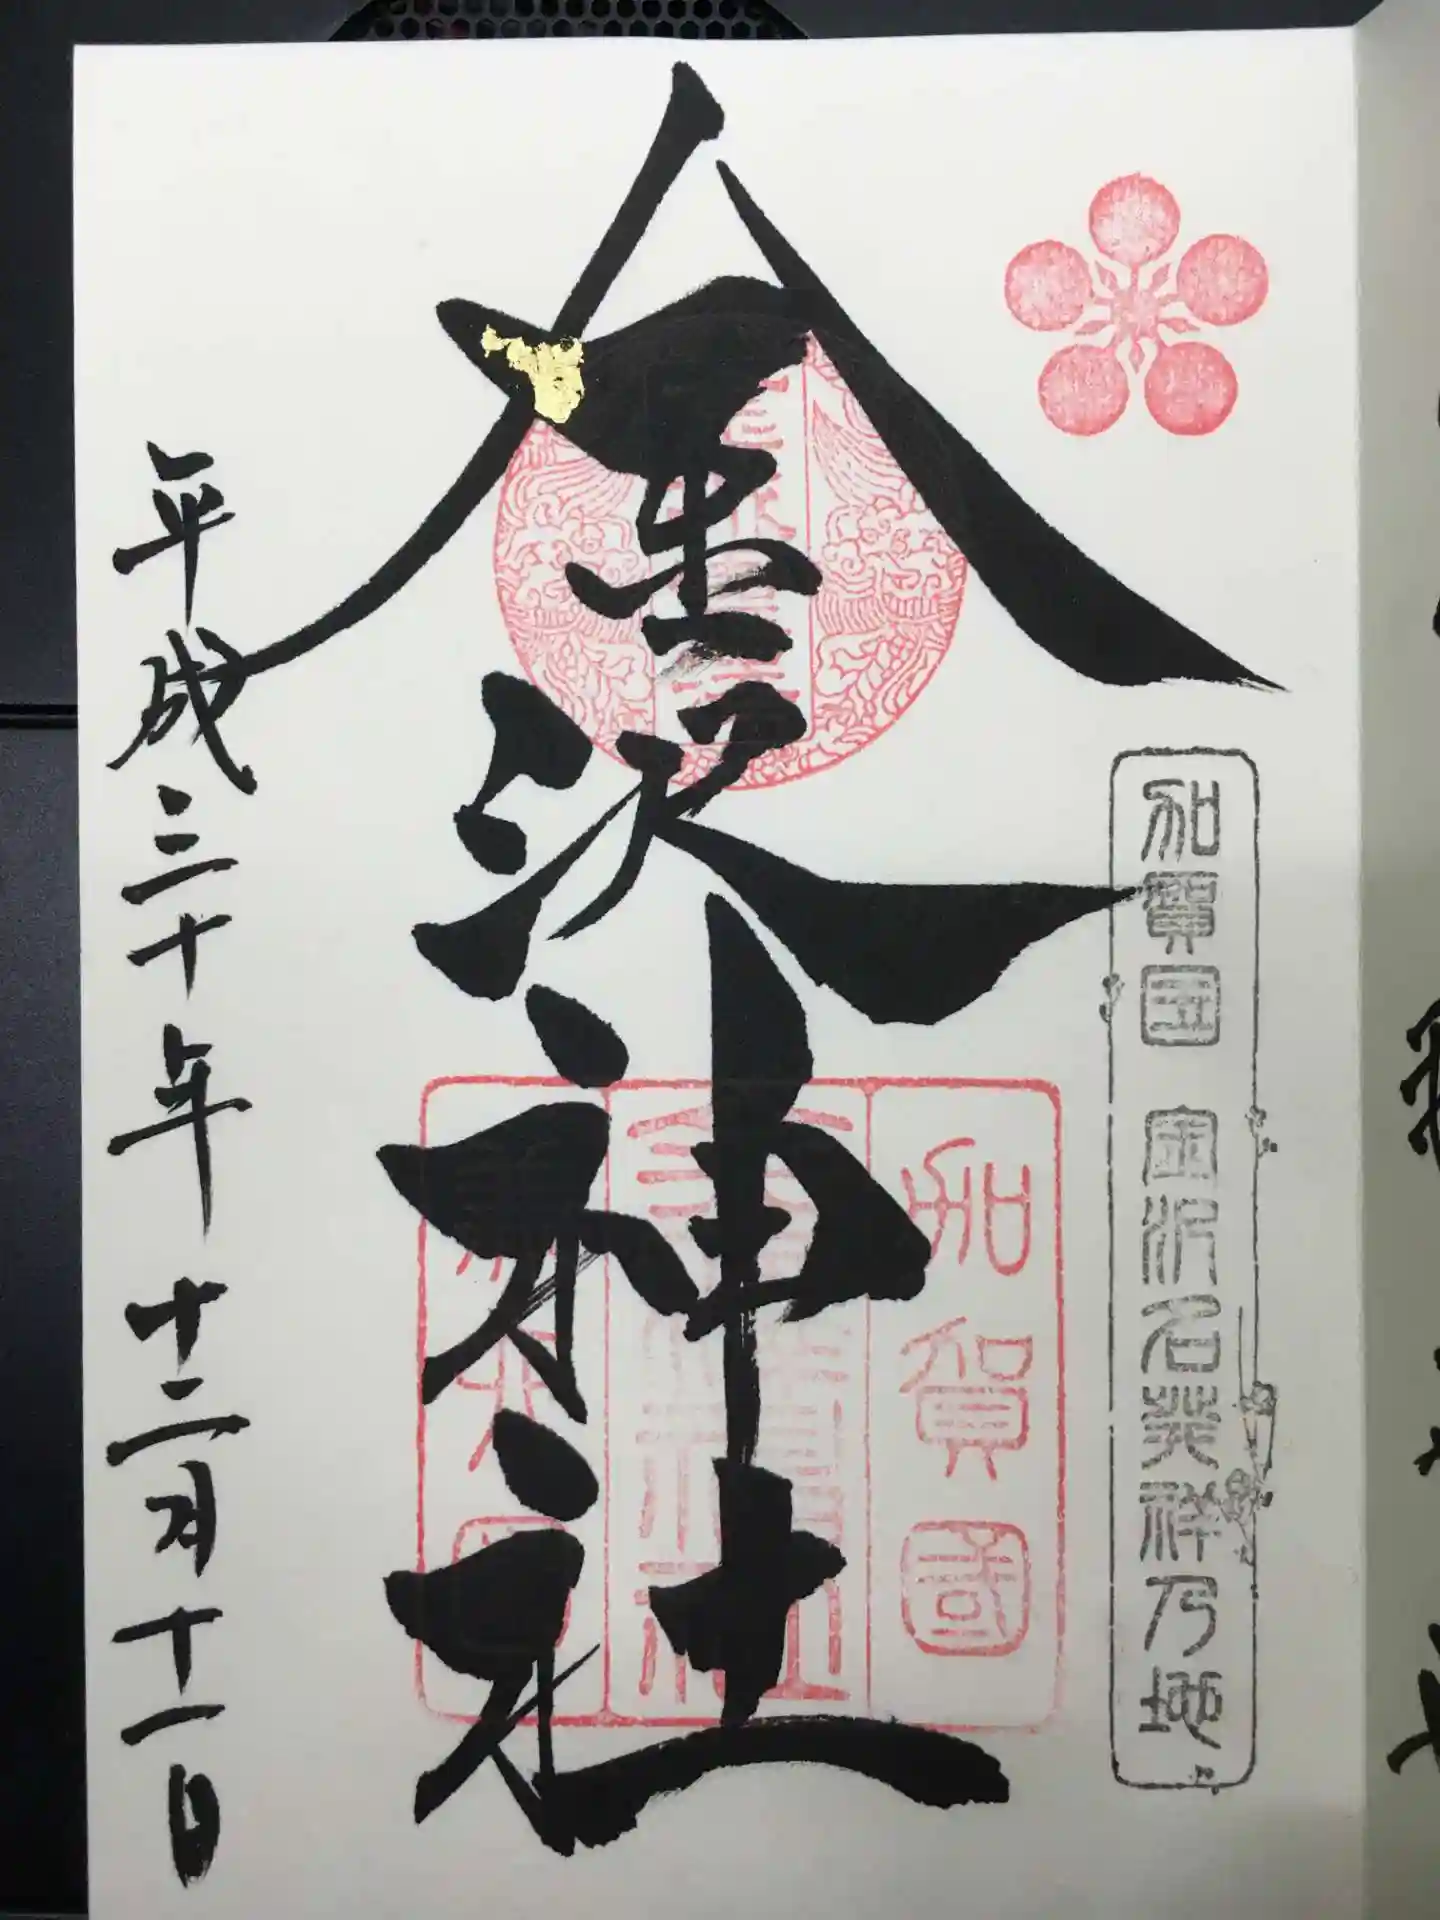 加賀国 金沢名発祥乃地
加賀國
金沢神社
平成三十年十二月十一日